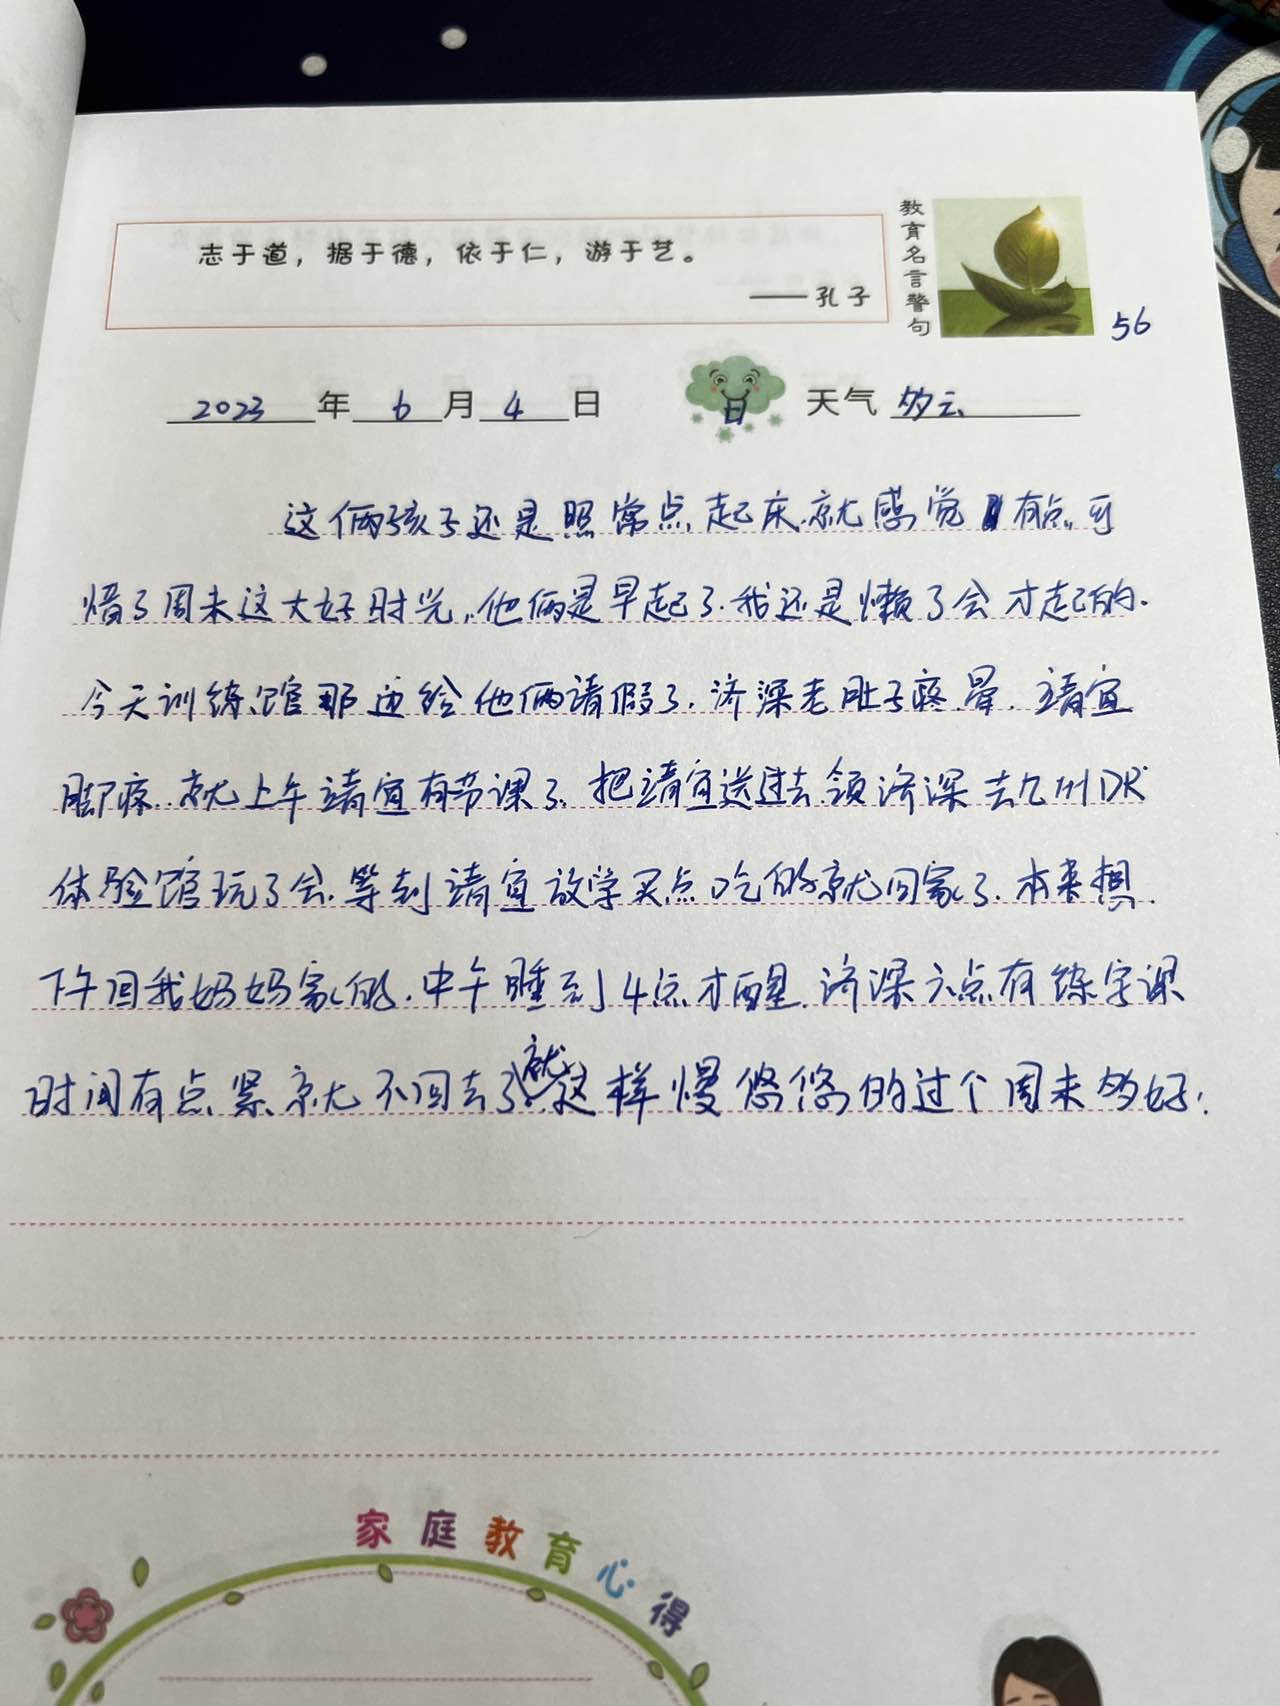 志于道，据于德，依于仁，游于艺。
——孔子
教育名言警句
56
2023年6月4日 日 天气 多云
这俩孩子还是照常点起床.就感觉有点可
惜了周末这大好时光,他俩是早起了.我还是懒了会才起的.
今天训练馆那边给他俩请假了.济深老肚子疼.晕.靖宜
脚疼.就上午靖宜有节课了.把靖宜送过去领济深去九州DR
体验馆玩了会.等到靖宜放学买点吃的就回家了.本来想
下午回我妈妈家的.中午睡到4点才醒.济深六点有练字课
时间有点紧.就不回去了.就这样慢悠悠的过个周末多好.
家庭教育心得